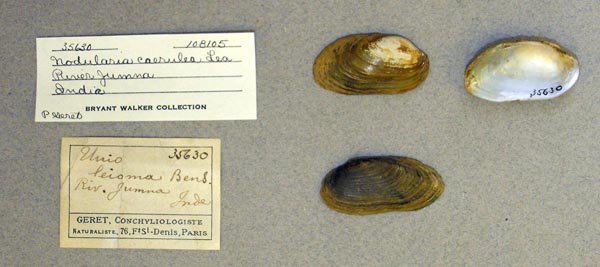 35630 108105
Nodularia caerulea Lea
River Jumna
India
BRYANT WALKER COLLECTION
P Geret
Unio 35630
leioma Bens.
Riv. Jumna
Inde
GERET, CONCHYLIOLOGISTE
NATURALISTE, 76, Fg St-DENIS, PARIS
35630